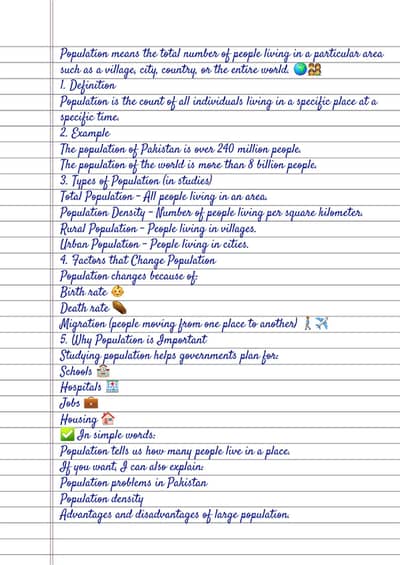 Population means the total number of people living in a particular area
such as a village, city, country, or the entire world. 🌍👨‍👩‍👧‍👦
1. Definition
Population is the count of all individuals living in a specific place at a
specific time.
2. Example
The population of Pakistan is over 240 million people.
The population of the world is more than 8 billion people.
3. Types of Population (in studies)
Total Population – All people living in an area.
Population Density – Number of people living per square kilometer.
Rural Population – People living in villages.
Urban Population – People living in cities.
4. Factors that Change Population
Population changes because of:
Birth rate 👶
Death rate ⚰️
Migration (people moving from one place to another) 🚶✈️
5. Why Population is Important
Studying population helps governments plan for:
Schools 🏫
Hospitals 🏥
Jobs 💼
Housing 🏠
✅ In simple words:
Population tells us how many people live in a place.
If you want, I can also explain:
Population problems in Pakistan
Population density
Advantages and disadvantages of large population.